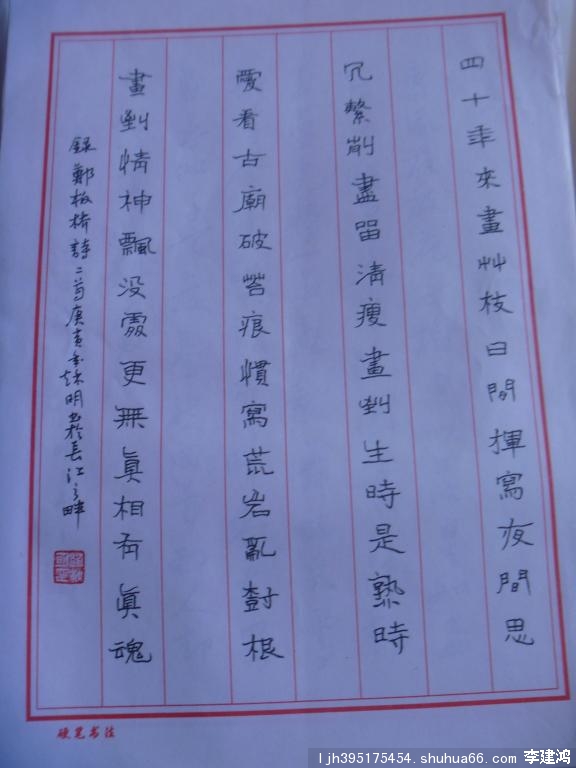 四十年來畫艸枝日間揮寫夜間思
冗繁削盡留清瘦畫到生時是熟時
愛看古廟破苔痕慣寫荒岩亂樹根
畫到情神飄没處更無真相有真魂
録鄭板橋詩二首庚寅金秋明書於長江之畔
硬笔书法
ljh395175454.shuhua66.com 李建鸿